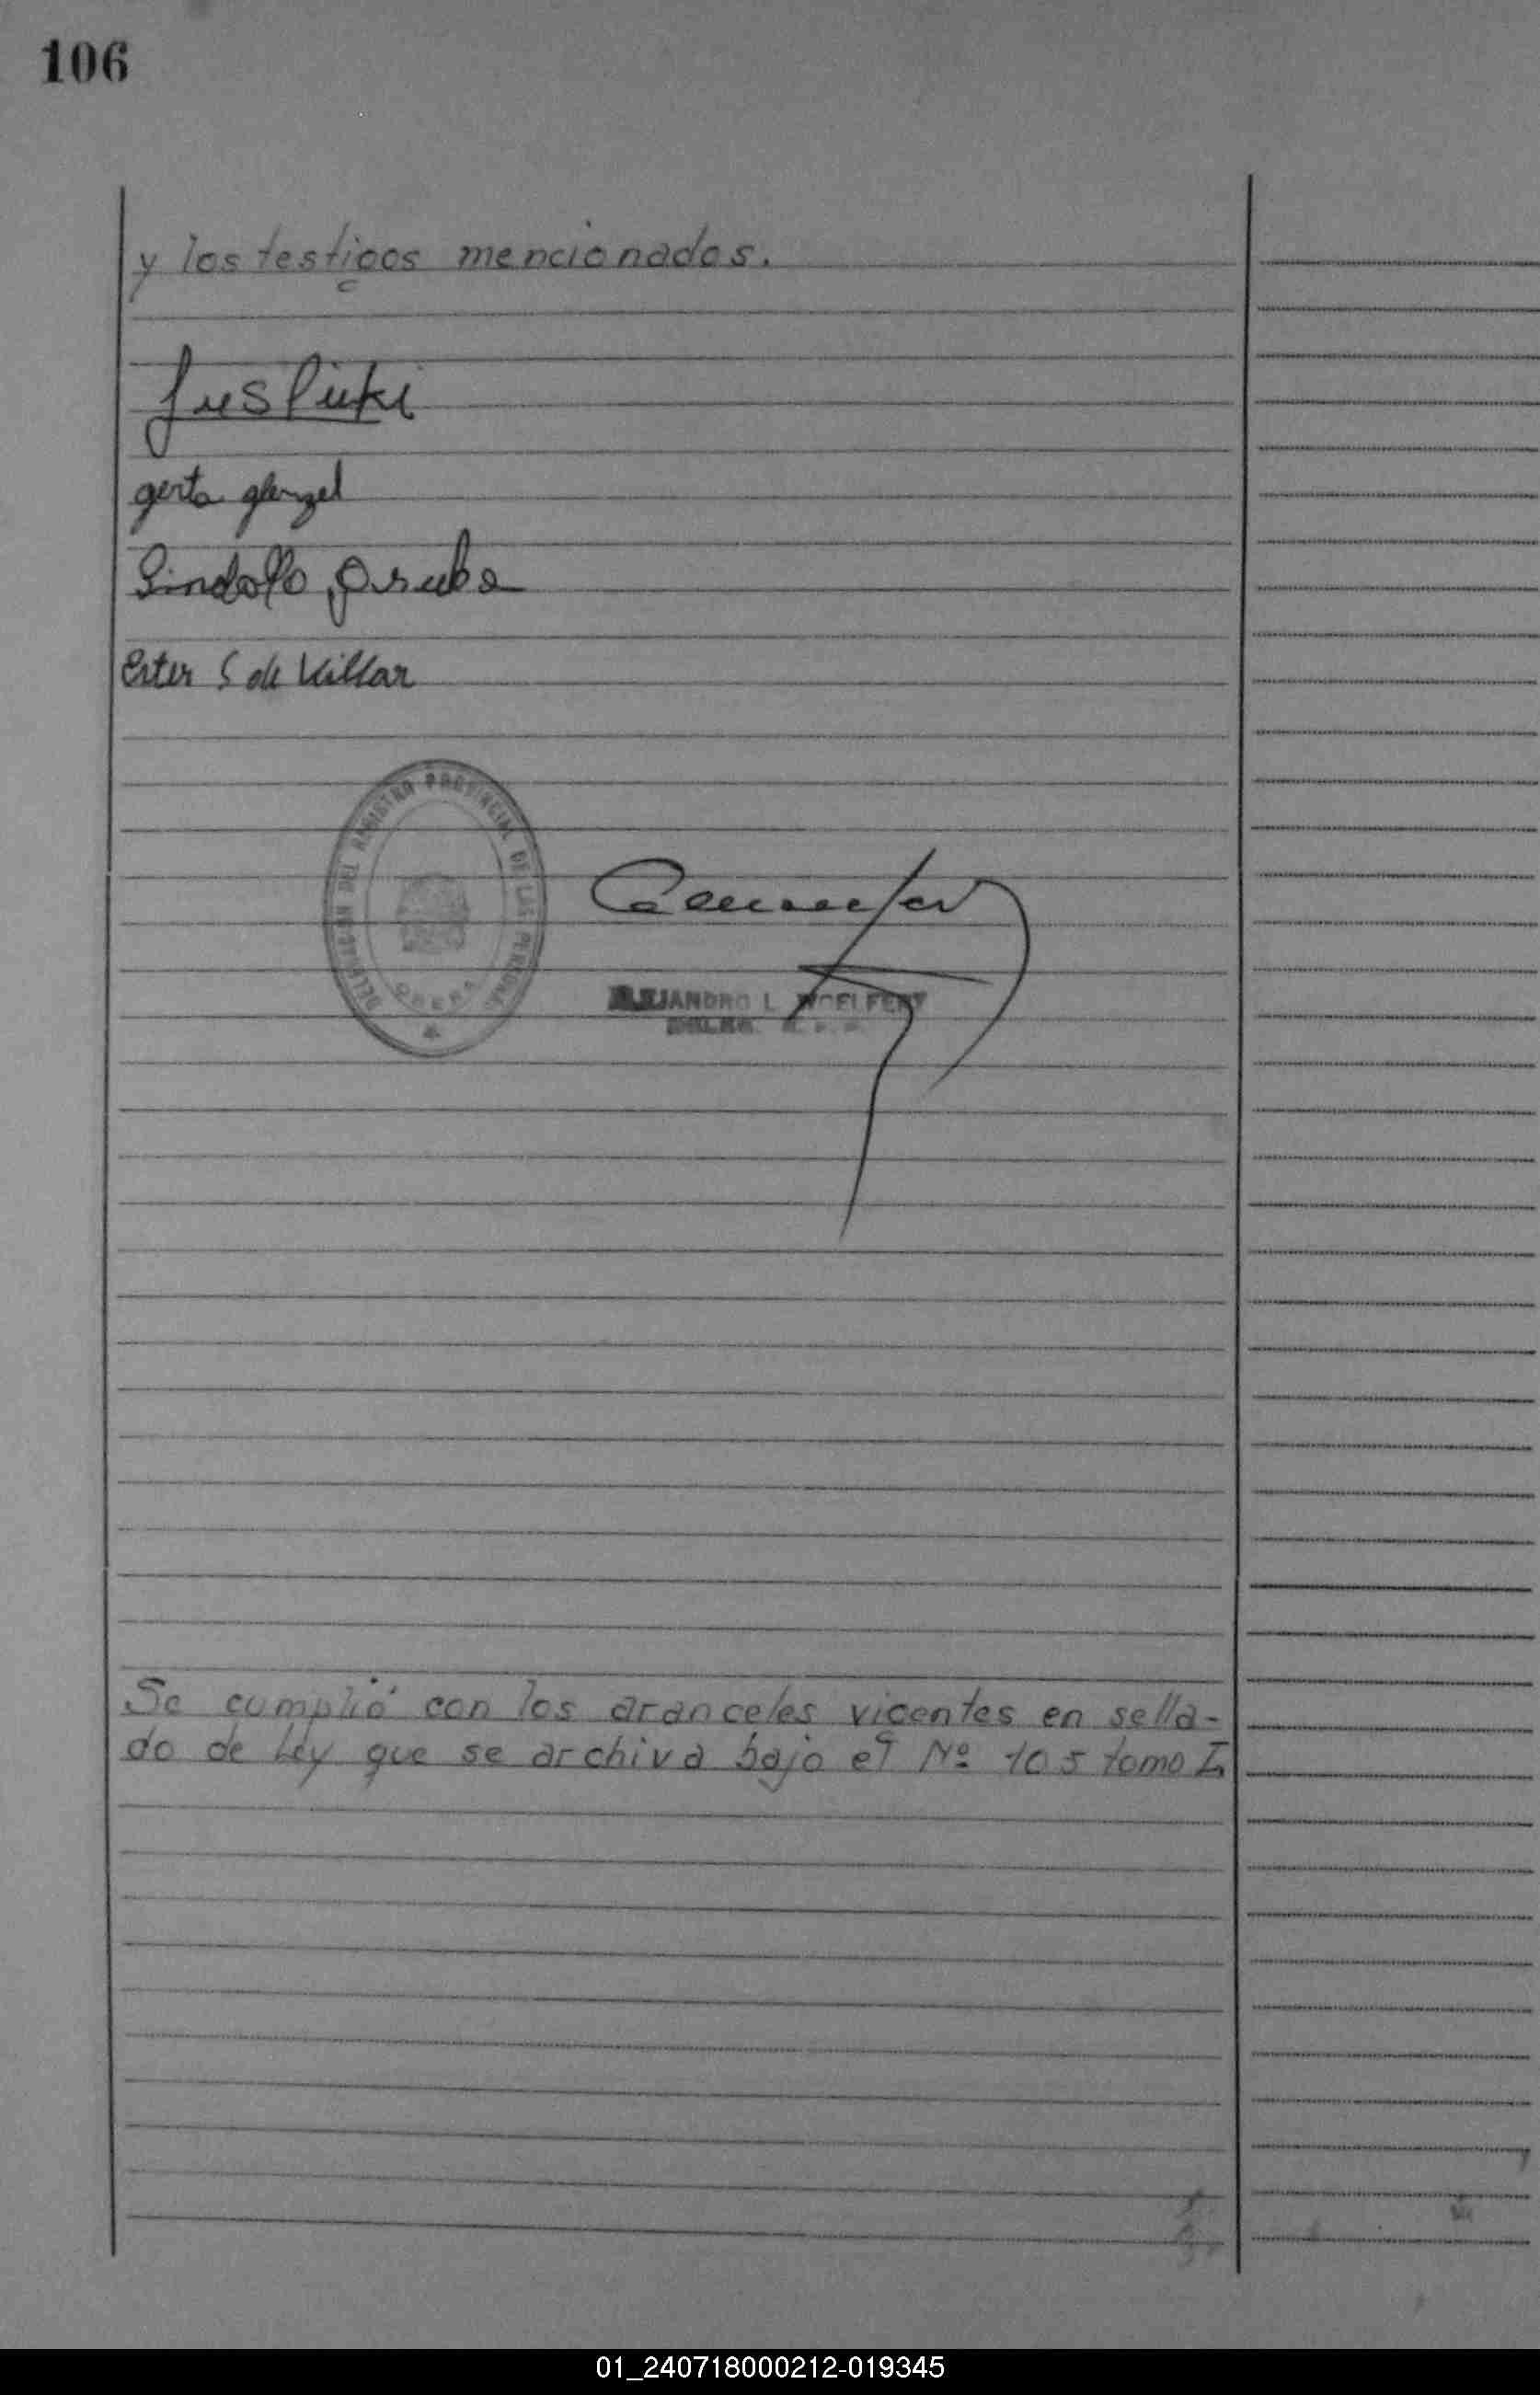 106
y los testigos mencionados.
gerta glenzel
Ester S de Villar
DELEGACION DEL REGISTRO PROVINCIAL DE LAS PERSONAS
OBERA
ALEJANDRO L. WOELFERT
Se cumplió con los aranceles vigentes en sella-
do de Ley que se archiva bajo el Nº 105 tomo I
01_240718000212-019345